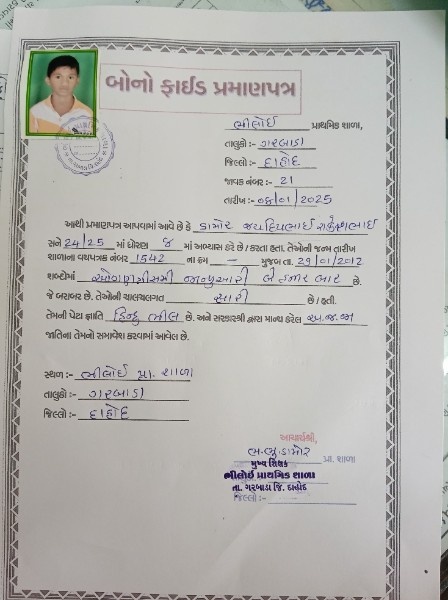 બોનો ફાઈડ પ્રમાણપત્ર
ભીલોઈ પ્રાથમિક શાળા,
તાલુકો :- ગરબાડા
જિલ્લો :- દાહોદ
જાવક નંબર :- 21
તારીખ :- 08/01/2025
આથી પ્રમાણપત્ર આપવામાં આવે છે કે ડામોર જયદિપભાઈ રાકેશભાઈ
સને 24/25 માં ધોરણ ૭ માં અભ્યાસ કરે છે / કરતા હતા. તેઓની જન્મ તારીખ
શાળાના વયપત્રક નંબર 1542 ના ક્રમ - મુજબ તા. 29/01/2012
શબ્દોમાં ઓગણત્રીસમી જાન્યુઆરી બે હજાર બાર છે.
જે બરાબર છે. તેઓની ચાલચલગત સારી છે / હતી.
તેમની પેટા જ્ઞાતિ હિન્દુ ભીલ છે. અને સરકારશ્રી દ્વારા માન્ય કરેલ અ.જ.જા
જાતિના તેમનો સમાવેશ કરવામાં આવેલ છે.
સ્થળ :- ભીલોઈ પ્રા. શાળા
તાલુકો :- ગરબાડા
જિલ્લો :- દાહોદ
આચાર્યશ્રી,
ભ.ભુ.ડામોર
પ્રા. શાળા
મુખ્ય શિક્ષક
ભીલોઈ પ્રાથમિક શાળા
તા. ગરબાડા જિ. દાહોદ
જિલ્લો :-